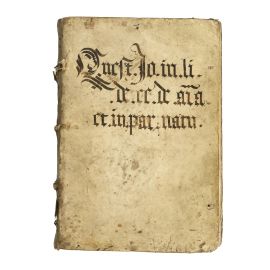 Quest. Jo. in. li.
de. ce. de. aīa
et. in. par. natu.